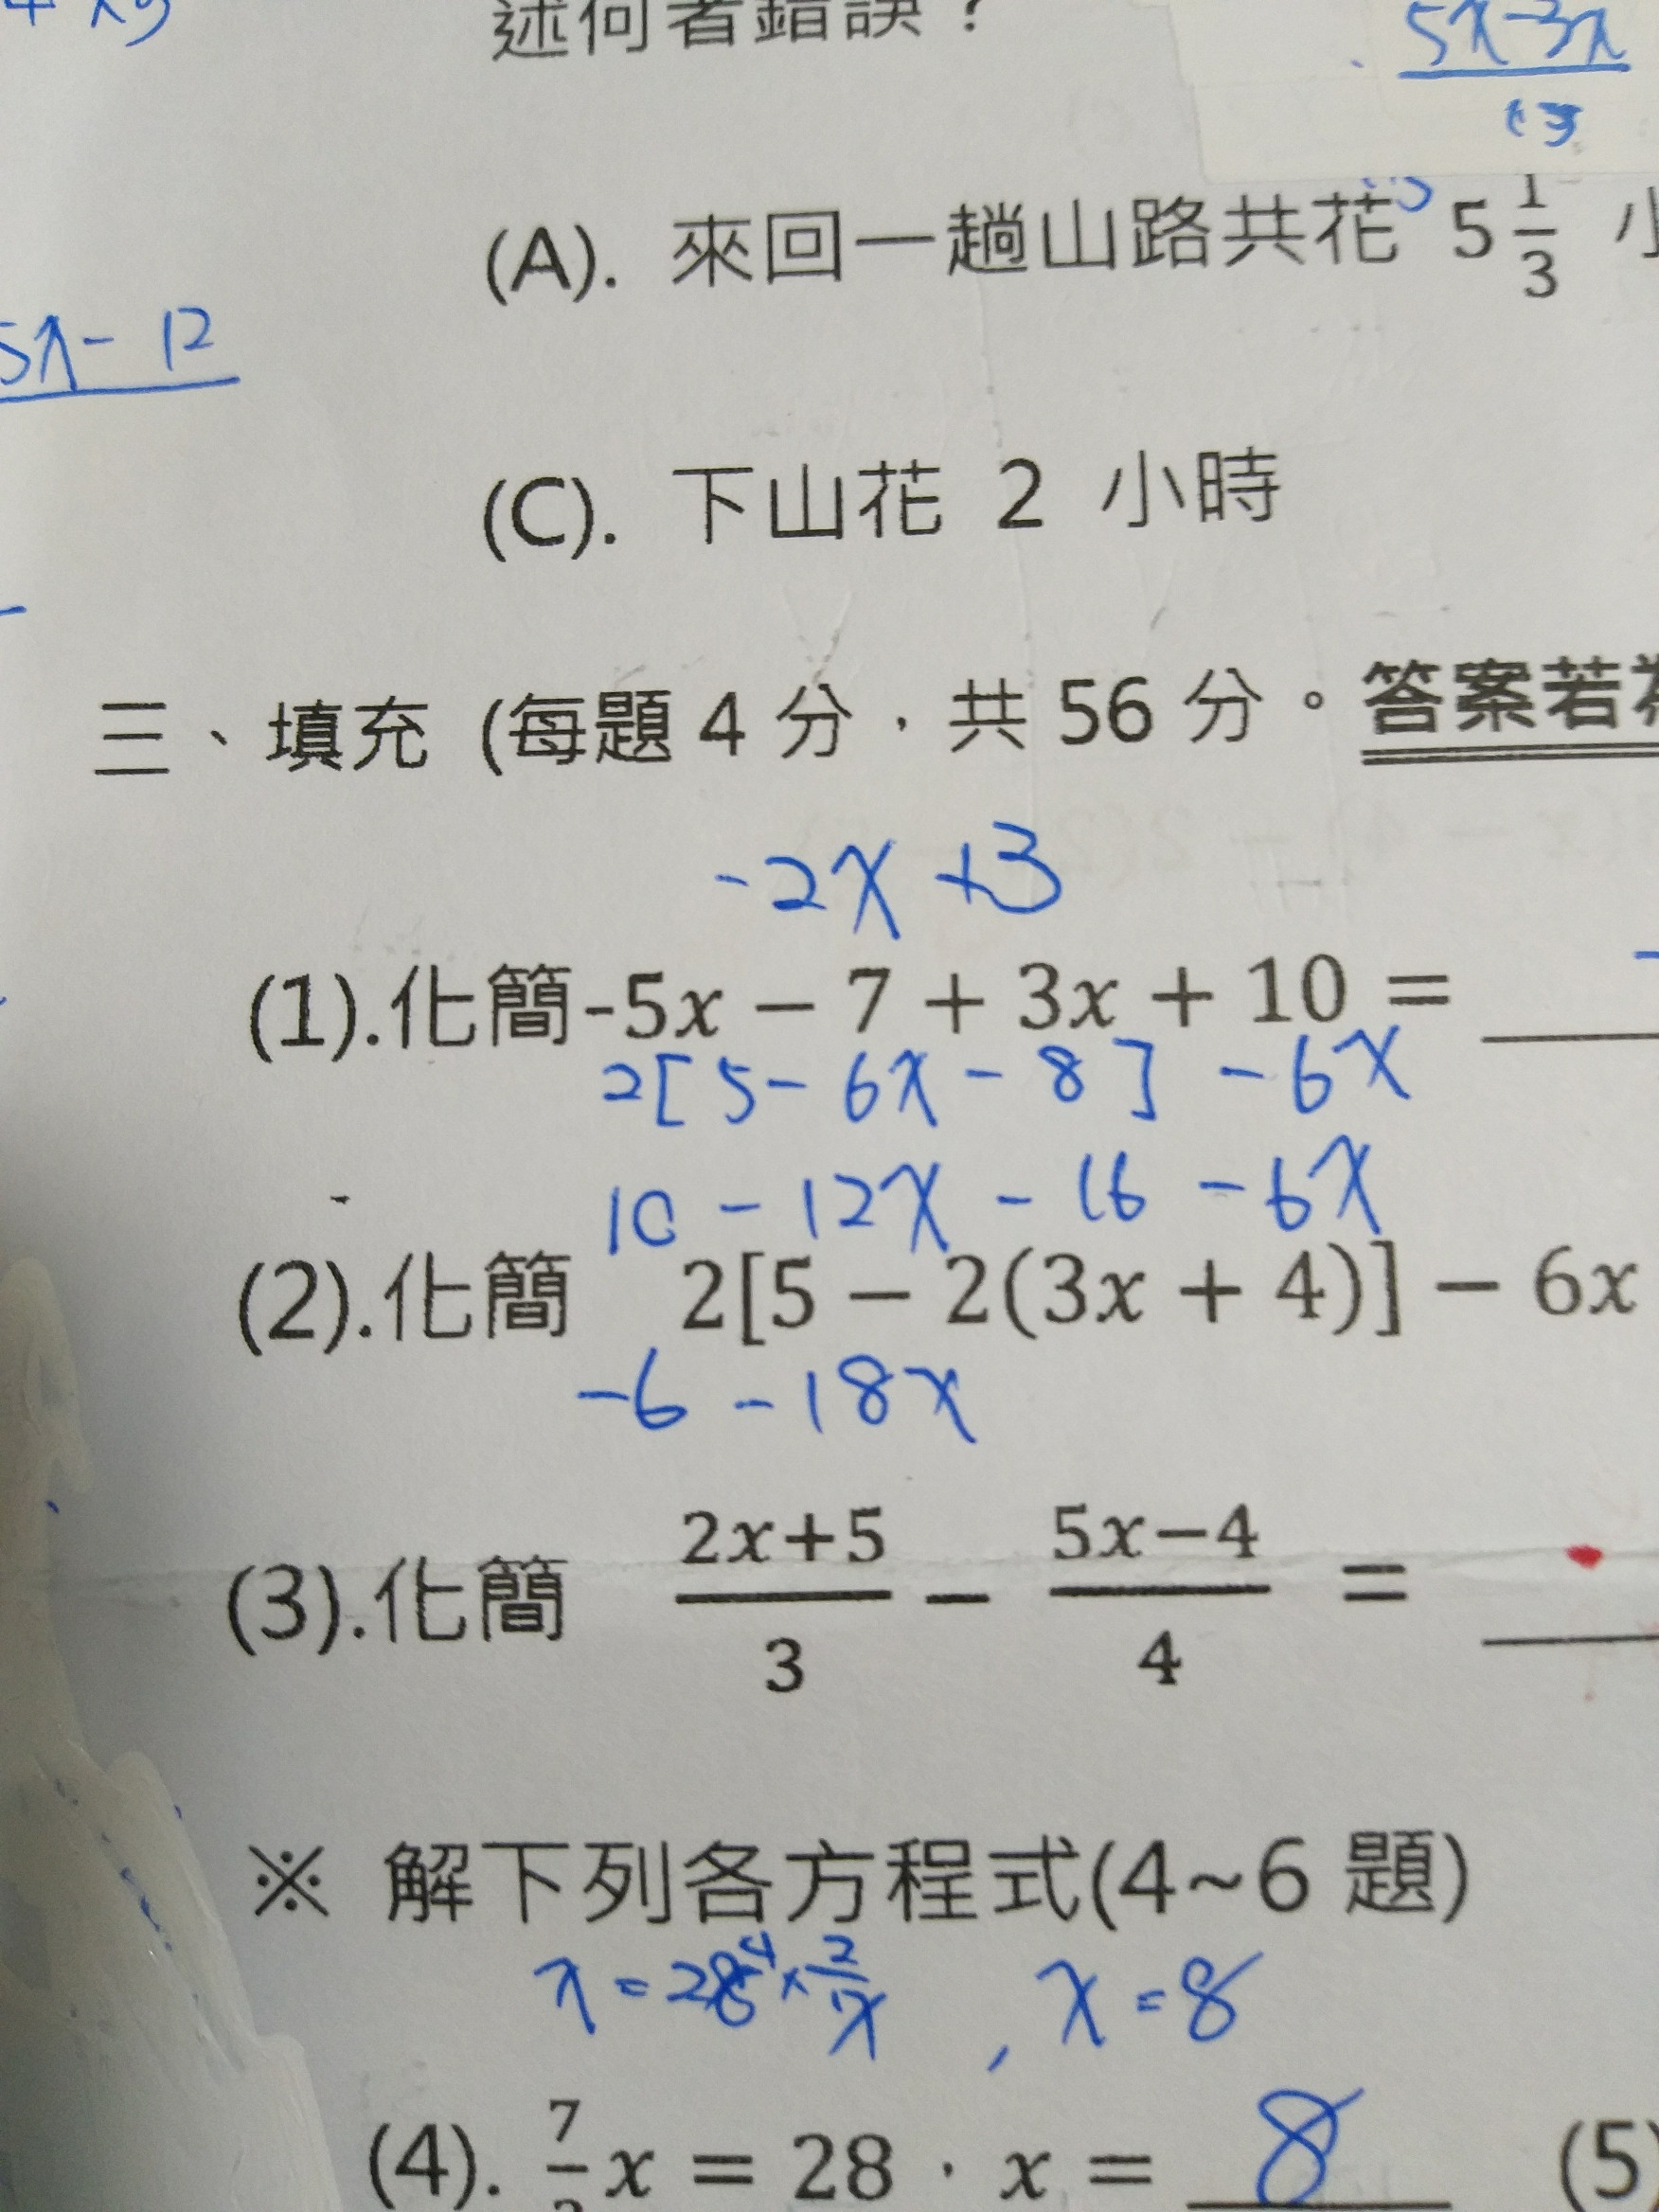 述何者錯誤？
5x-3x
(A). 來回一趟山路共花 5 1/3 小
5x - 12
(C). 下山花 2 小時
三、填充 (每題 4 分，共 56 分。答案若
-2x +3
(1).化簡-5x − 7 + 3x + 10 =
2[5 - 6x - 8] - 6x
10 - 12x - 16 - 6x
(2).化簡 2[5 − 2(3x + 4)] − 6x
-6 - 18x
(3).化簡 (2x+5)/3 − (5x−4)/4 =
※ 解下列各方程式(4~6 題)
x = 8
(4). 7/2 x = 28，x = 8 (5)